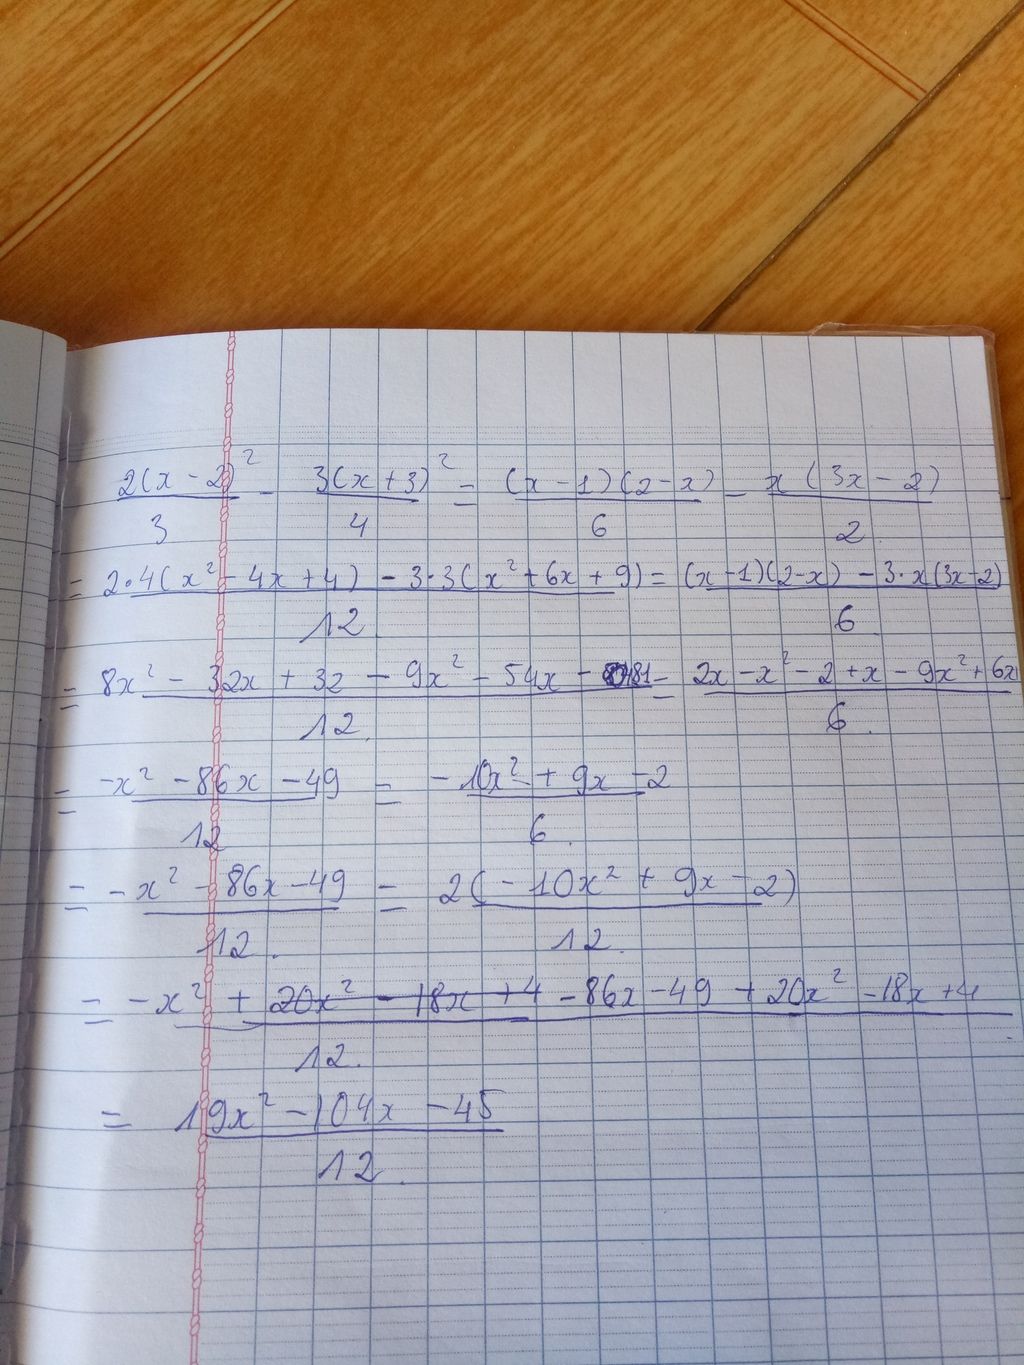 2(x - 2)² / 3 - 3(x + 3)² / 4 = (x - 1)(2 - x) / 6 - x(3x - 2) / 2
= 2·4(x² - 4x + 4) - 3·3(x² + 6x + 9) / 12 = (x - 1)(2 - x) - 3·x(3x - 2) / 6
= 8x² - 32x + 32 - 9x² - 54x - 81 / 12 = 2x - x² - 2 + x - 9x² + 6x / 6
= -x² - 86x - 49 / 12 = -10x² + 9x - 2 / 6
= -x² - 86x - 49 / 12 = 2(-10x² + 9x - 2) / 12
= -x² + 20x² - 18x + 4 - 86x - 49 + 20x² - 18x + 4 / 12
= 19x² - 104x - 45 / 12